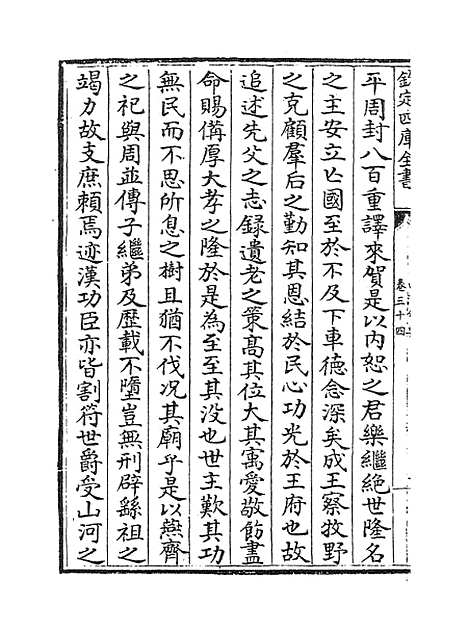 欽定四庫全書
卷三十四
平周封八百重譯來賀是以内恕之君樂繼絶世隆名
之主安立亡國至於不及下車德念深矣成王察牧野
之克顧羣后之勤知其恩結於民心功光於王府也故
追述先父之志録遺老之策髙其位大其㝢愛敬飭盡
命賜備厚大孝之隆於是為至至其没也世主歎其功
無民而不思所息之樹且猶不伐况其廟乎是以燕齊
之祀與周並傳子繼弟及歴載不墮豈無刑辟繇祖之
竭力故支庶頼焉迹漢功臣亦皆割符世爵受山河之